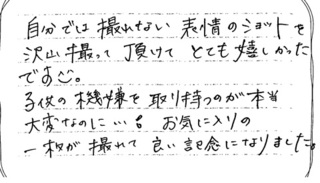 自分では撮れない表情のショットを
沢山撮って頂けてとても嬉しかった
です☺。
子供の機嫌を取り持つのが本当
大変なのに…。お気に入りの
一枚が撮れて良い記念になりました。